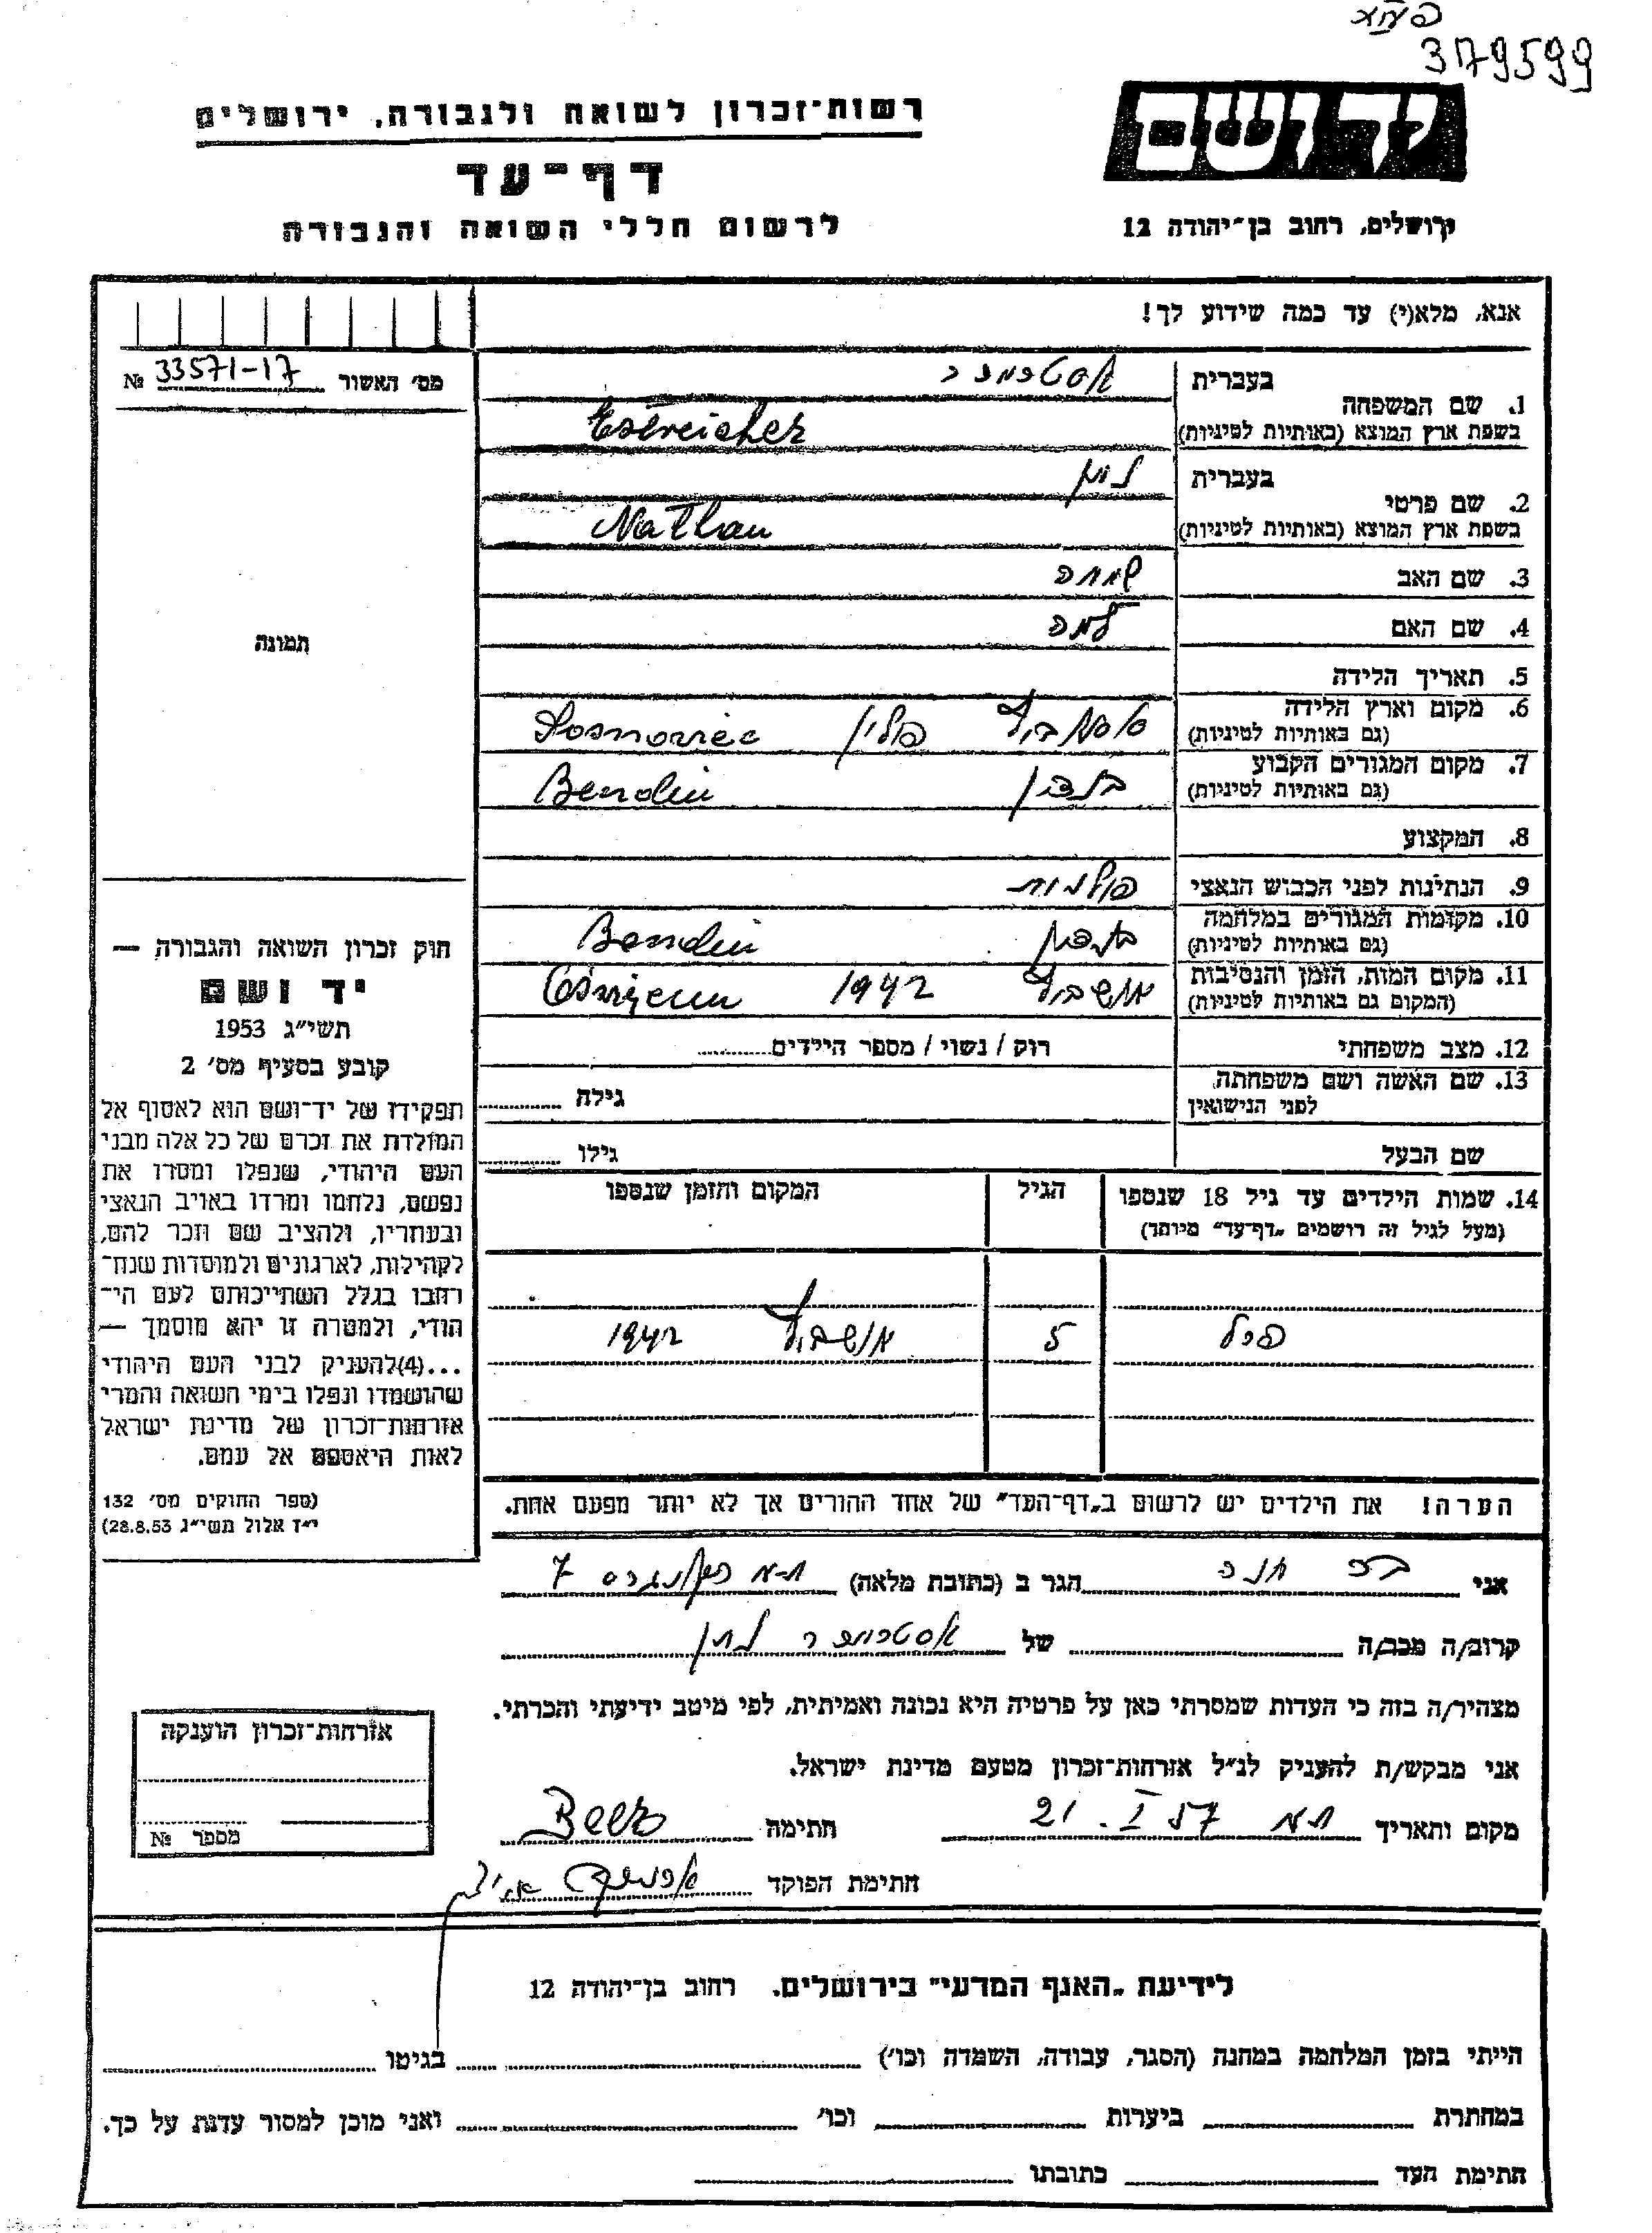 379599
רשות־זכרון לשואה ולגבורה, ירושלים
דף־עד
לרשום חללי השואה והגבורה
ידושם
ירושלים, רחוב בן־יהודה 12
אנא, מלא(י) עד כמה שידוע לך!
מס׳ האשור 33571-17 №
1. שם המשפחה
בעברית
בשפת ארץ המוצא (באותיות לטיניות) Estreicher
2. שם פרטי
בעברית נתן
בשפת ארץ המוצא (באותיות לטיניות) Nathan
3. שם האב שמחה
4. שם האם
5. תאריך הלידה
6. מקום וארץ הלידה
(גם באותיות לטיניות) סוסנוביץ פולין Sosnoviec
7. מקום המגורים הקבוע
(גם באותיות לטיניות) בנדין Bendin
8. המקצוע
9. הנתינות לפני הכבוש הנאצי פולנית
10. מקומות המגורים במלחמה
(גם באותיות לטיניות) בנדין Bendin
11. מקום המות, הזמן והנסיבות
(המקום גם באותיות לטיניות) אושביץ 1942
12. מצב משפחתי רוק / נשוי / מספר הילדים
13. שם האשה ושם משפחתה
לפני הנישואין גילה
שם הבעל גילו
14. שמות הילדים עד גיל 18 שנספו הגיל המקום והזמן שנספו
(מעל לגיל זה רושמים „דף־עד" מיוחד)
5 אושביץ 1942
הערה! את הילדים יש לרשום ב„דף־העד" של אחד ההורים אך לא יותר מפעם אחת.
תמונה
חוק זכרון השואה והגבורה —
יד ושם
תשי״ג 1953
קובע בסעיף מס׳ 2
תפקידו של יד־ושם הוא לאסוף אל
המולדת את זכרם של כל אלה מבני
העם היהודי, שנפלו ומסרו את
נפשם, נלחמו ומרדו באויב הנאצי
ובעוזריו, ולהציב שם וזכר להם,
לקהילות, לארגונים ולמוסדות שנח־
רבו בגלל השתייכותם לעם הי־
הודי, ולמטרה זו יהא מוסמך —
...(4)להעניק לבני העם היהודי
שהושמדו ונפלו בימי השואה והמרי
אזרחות־זכרון של מדינת ישראל
לאות היאספם אל עמם.
(ספר החוקים מס׳ 132
י״ז אלול תשי״ג 28.8.53)
אני חנה הגר ב (כתובת מלאה) 7
קרוב/ה מכר/ה של נתן
מצהיר/ה בזה כי העדות שמסרתי כאן על פרטיה היא נכונה ואמיתית, לפי מיטב ידיעתי והכרתי.
אני מבקש/ת להעניק לנ״ל אזרחות־זכרון מטעם מדינת ישראל.
מקום ותאריך ת״א 21. I 57 חתימה Beer
חתימת הפוקד
אזרחות־זכרון הוענקה
מספר №
לידיעת „האגף המדעי" בירושלים, רחוב בן־יהודה 12
הייתי בזמן המלחמה במחנה (הסגר, עבודה, השמדה וכו׳) בגיטו
במחתרת ביערות וכו׳ ואני מוכן למסור עדות על כך.
חתימת העד כתובתו